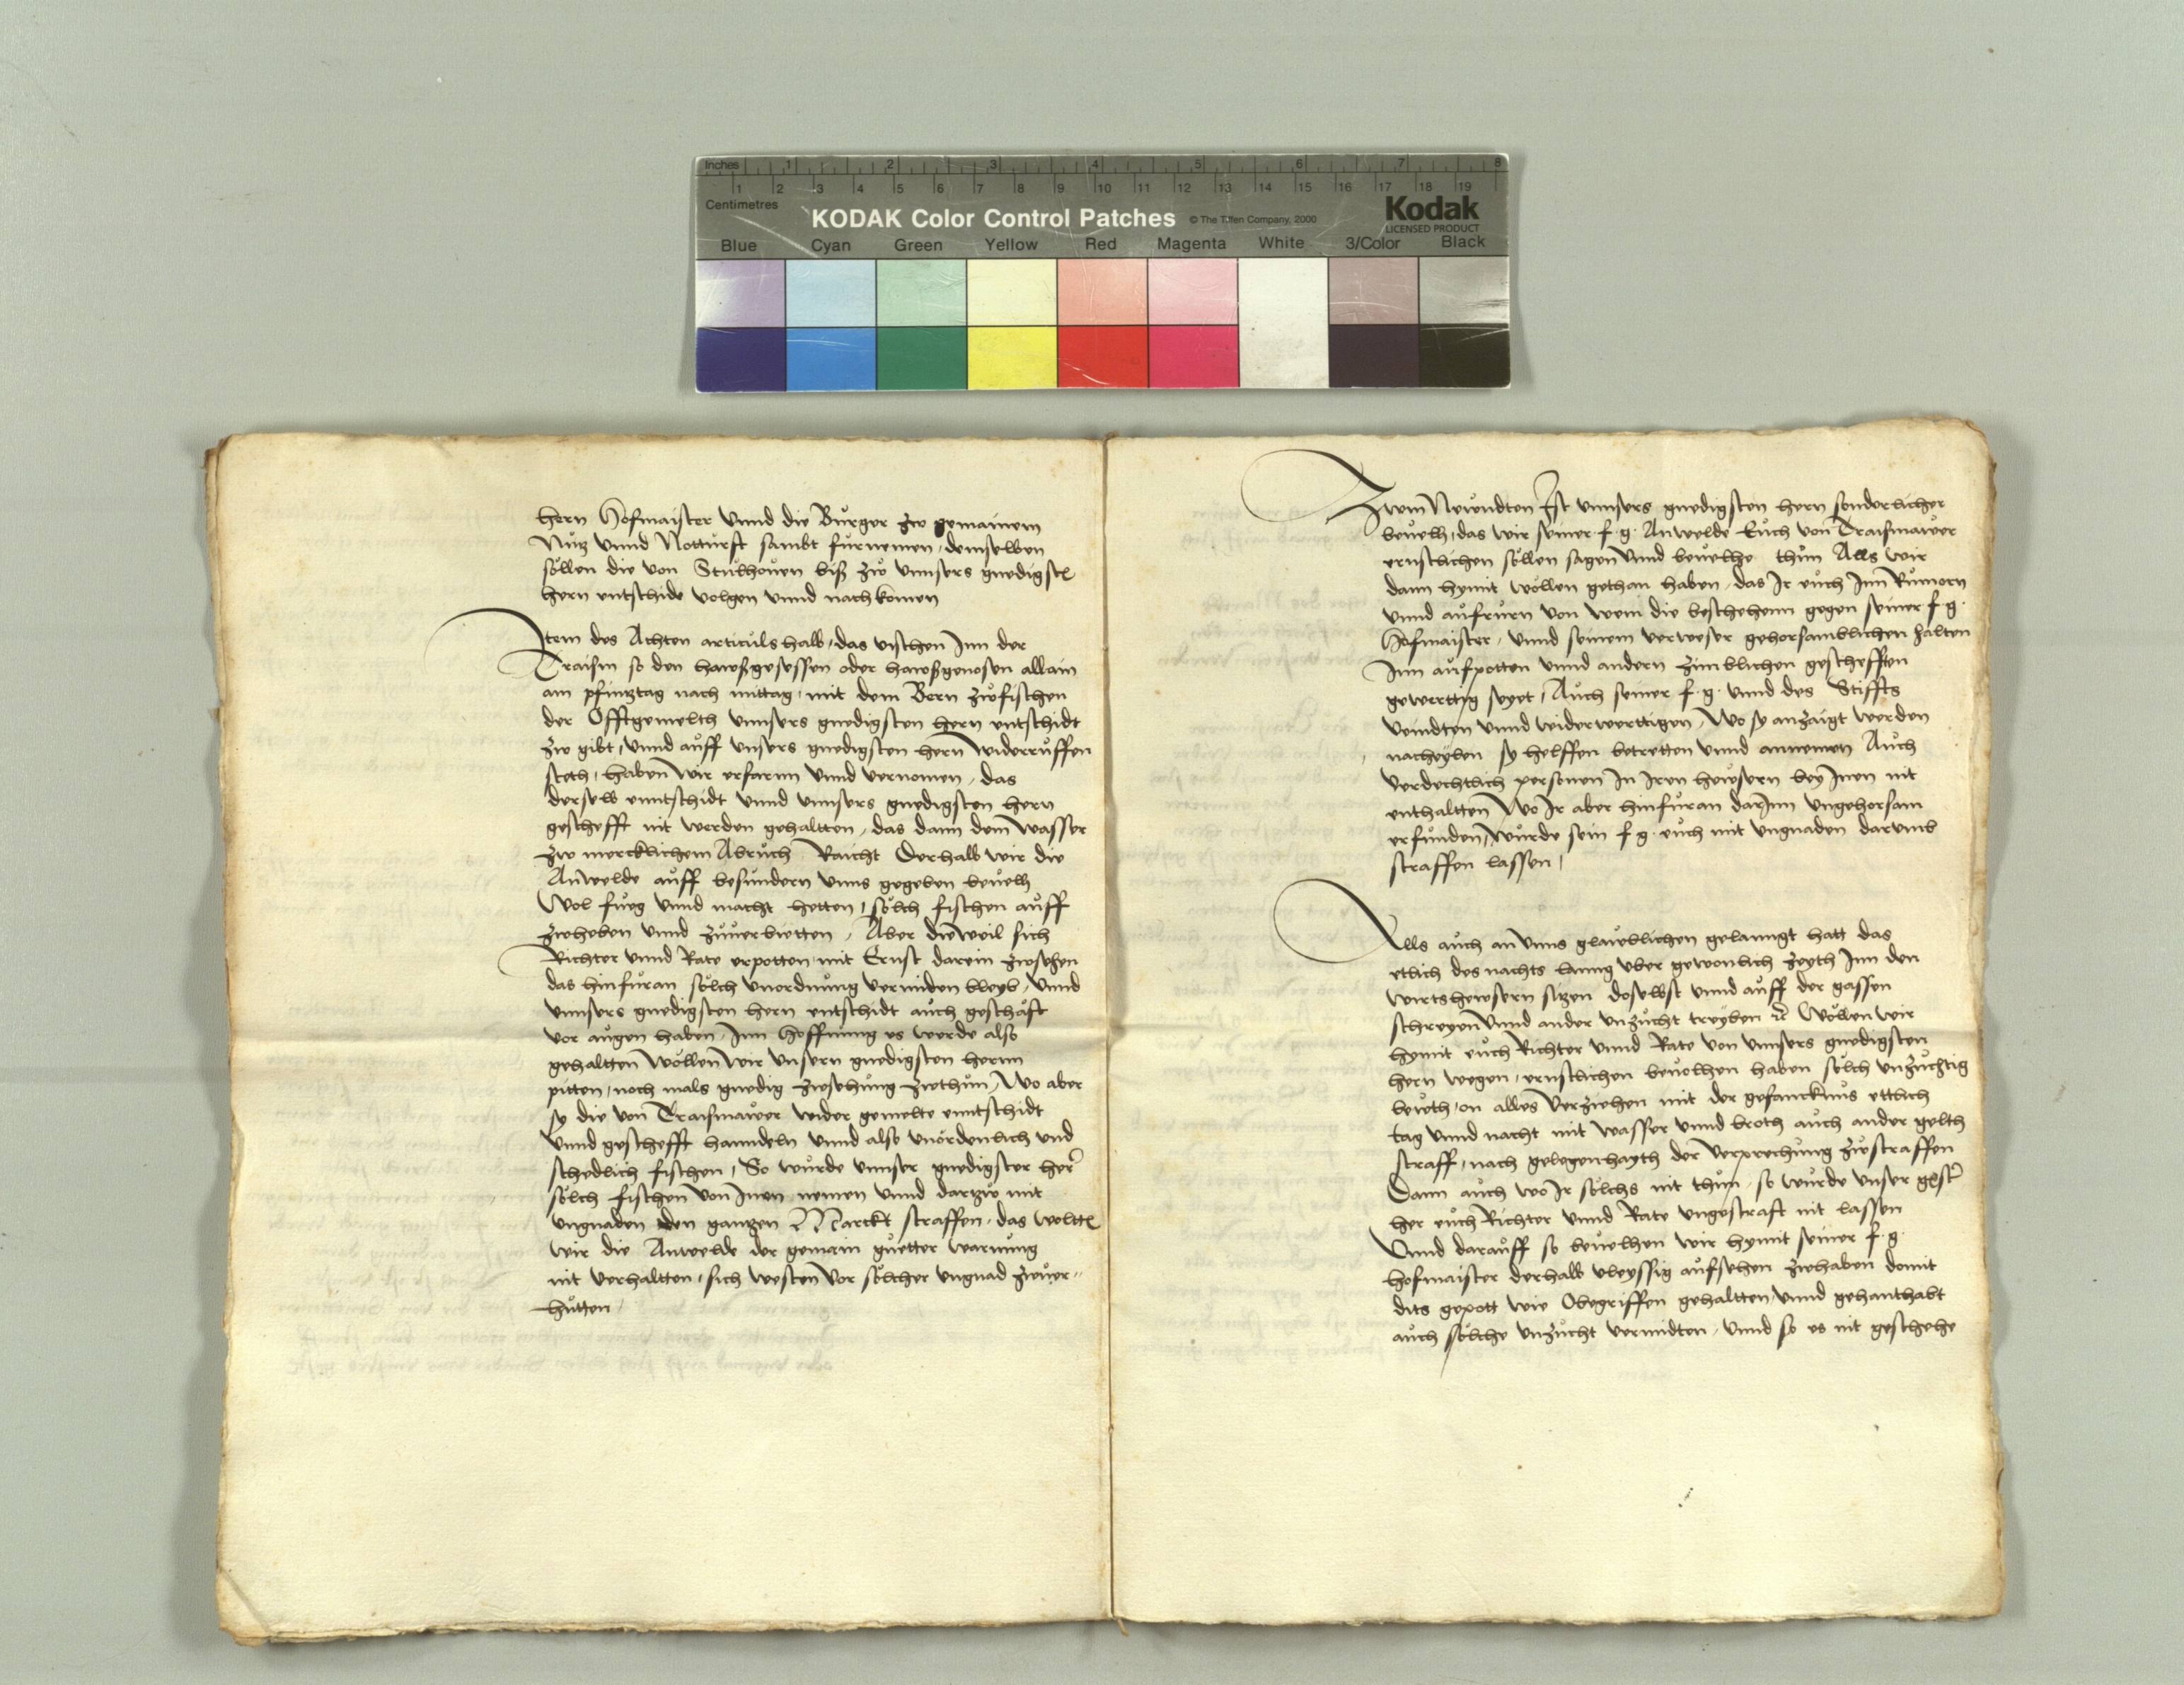 Inches 1 2 3 4 5 6 7 8
1 2 3 4 5 6 7 8 9 10 11 12 13 14 15 16 17 18 19
Centimetres
KODAK Color Control Patches © The Tiffen Company, 2000 Kodak
LICENSED PRODUCT
Blue Cyan Green Yellow Red Magenta White 3/Color Black
hern Hofmaister vnnd die Burger zw gemainem
Nutz vnnd Notturft sambt furnemen, demselben
söllen die von Stulhouen biß zw vnnsers gnedigsten
hern entschide volgen vnnd nachkomen
Item des Achten articuls halb, das vischen Inn der
Traism so den hawßgesessen oder hawßgenosen allain
am pfintztag nach mittag, mit dem Bern zwfischen
der Offtgemelth vnnsers gnedigsten hern entschidt
zw gibt, vnnd auff vnsers gnedigsten hern widerruffen
steth, haben wir erfarnn vnnd vernomen, das
derselb enntschidt vnnd vnnsers gnedigsten hern
geschefft nit werden gehaltten, das dann dem wasser
zw mercklichem Abruch Raicht Derhalb wir die
Anwelde auff besundern vnns gegeben beuelh
Wol fueg vnnd macht hetten, sölch fischen auff
zwheben vnnd zuuerbietten, Aber dieweil sich
Richter vnnd Rate erpotten mit Ernst darein zwsehen
das hinfuran sölch vnordnung vermiden bleyb, vnnd
vnnsers gnedigsten hern entschidt auch geschäft
vor augen haben, Inn Hoffnung es werde also
gehaltten wöllen wir vnsern gnedigsten hernn
pitten, noch mals gnedig zwsehung zwthun, Wo aber
sy die von Traismawer wider gemelte enntschidt
vnnd geschefft hanndeln vnnd also vnördenlich vnd
schedlich fischen, So wurde vnnser gnedigster her
sölch fischen von Inen nemen vnnd dartzw mit
vngnaden den gantzen Marckt straffen, das wolten
wir die Anwelde der gemain guetter warnung
nit verhaltten, sich westen vor sölcher vngnad zwuer-
hütten,
Zwm Newndten Ist vnnsers gnedigsten hern sonderlicher
beuelh, das wir seiner f. g. Anwelde Euch von Traismawer
ernstlichen söllen sagen vnnd beuelhe thun Alls wir
dann hymit wöllen gethan haben, das Ir euch Inn Rumorn
vnnd aufrurn von wem die beschehenn gegen seiner f. g.
Hofmaister, vnnd seinem verweser gehorsamblichen halten
Inn aufpotten vnnd andern zimblichen geschefften
gewerttig seyet, Auch seiner f. g. vnnd des Stiffts
veindten vnnd widerwerttigen, Wo sy anzaigt werden
nacheyben sy helffen betretten vnnd annemen Auch
verdechtlich personen In Iren hewsern bey Inen nit
enthaltten Wo Ir aber hinfuran darinn vngehorsam
erfunden, wurde sein f. g. euch mit vngnaden darumb
straffen lassen,
Alls auch an vnns glaublichen gelanngt hatt das
etlich des nachts lanng vber gewonlich zeyth Inn den
wirtshewsern sitzen doselbst vnnd auff der gassen
schreyen vnnd ander vnzucht treyben etc Wöllen wir
hymit euch Richter vnnd Rate von vnnsers gnedigsten
hern wegen, ernstlichen beuolhen haben sölch vnzuchtig
lewth, on alles verziehen mit der gefancknus ettlich
tag vnnd nacht mit wasser vnnd broth auch ander gelth
straff, nach gelegenhayth der verprechung zwstraffen
Dann auch wo Ir sölchs nit thun, so wurde vnser gester
her euch Richter vnnd Rate vngestraft nit lassen
Vnnd darauff so beuelhen wir hymit seiner f. g.
hofmaister derhalb vleyssig aufsehen zwhaben domit
dits gepott wie Obegriffen gehaltten, vnnd gehanthabt
auch sölche vnzucht vermidten, vnnd so es nit geschehe